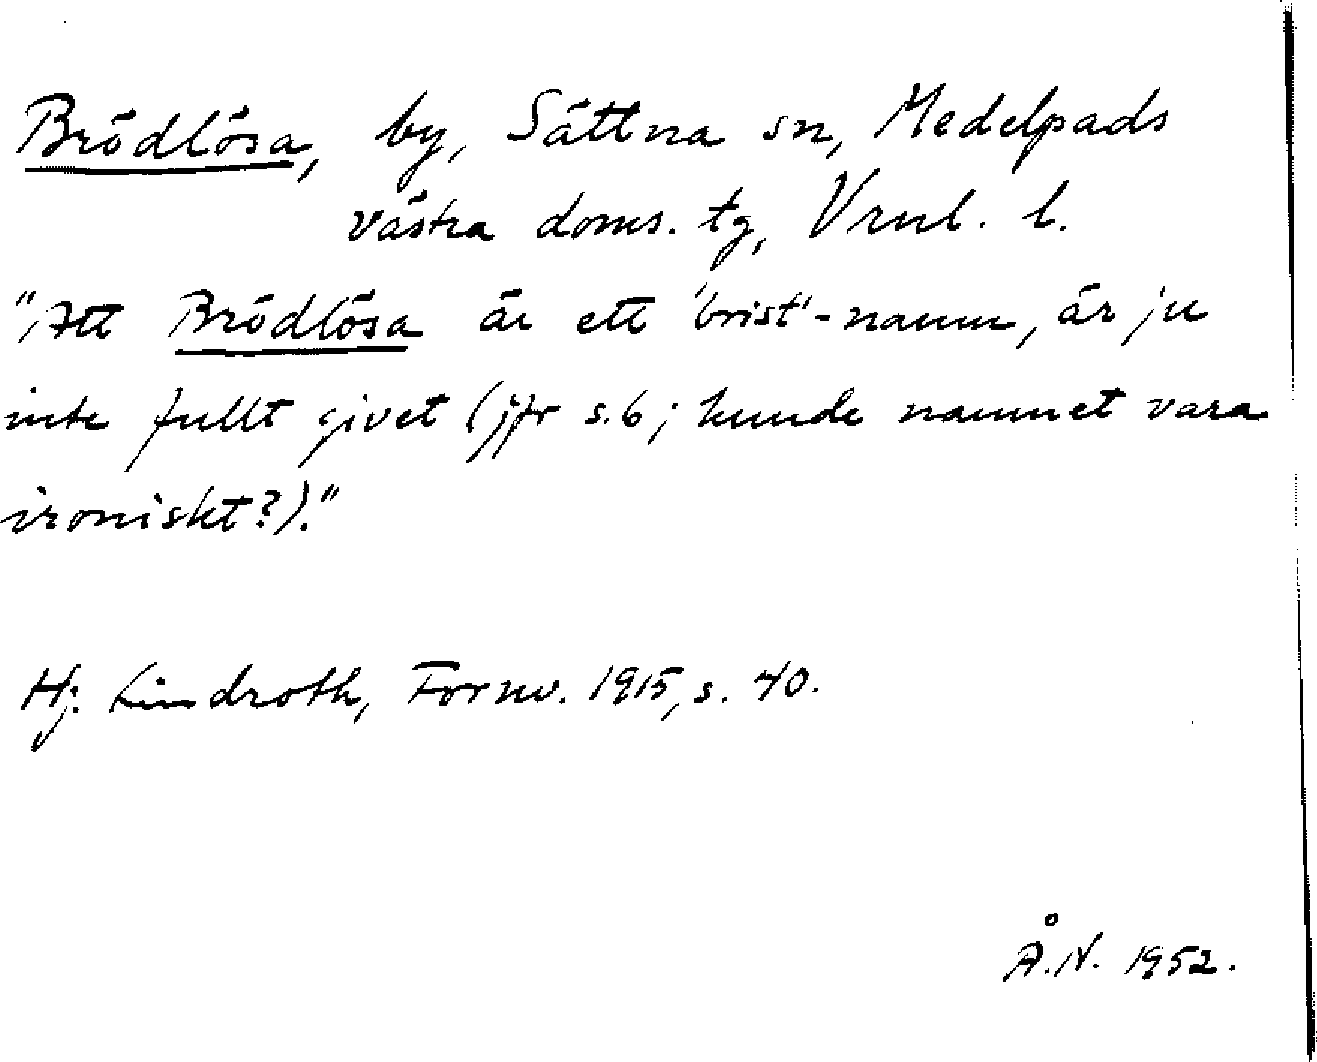 Brödlösa, by, Sättna sn, Medelpads
västra doms. tg, Vrnl. l.
"Att Brödlösa är ett 'brist'-namn, är ju
inte fullt givet (jfr s. 6; kunde namnet vara
ironiskt?)."
Hj. Lindroth, Fornv. 1915, s. 40.
Å.N. 1952.